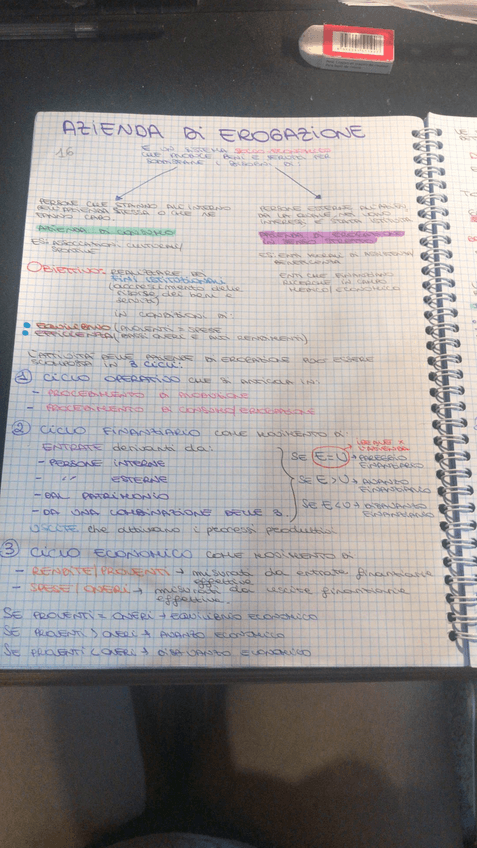 AZIENDA DI EROGAZIONE
16
È UN SISTEMA SOCIO-ECONOMICO
CHE PRODUCE BENI E SERVIZI PER
SODDISFARE I BISOGNI DI:
PERSONE CHE STANNO ALL'INTERNO
DELL'AZIENDA STESSA O CHE NE
FANNO CAPO
AZIENDA DI CONSUMO
ES: ASSOCIAZIONI CULTURALI/
SPORTIVE
PERSONE ESTERNE
ES. ENTI MORALI DI ASSISTENZA/
BENEFICENZA
ENTI CHE FINANZIANO
RICERCHE IN CAMPO
MEDICO/ECONOMICO
OBIETTIVO: REALIZZARE DEI
FINI ISTITUZIONALI
(accrescimento delle
risorse, dei beni e
servizi)
IN CONDIZIONI DI:
EQUILIBRIO (PROVENTI = SPESE
EFFICIENZA (BASSI ONERI E ALTI RENDIMENTI)
L'ATTIVITÀ DELLE AZIENDE DI EROGAZIONE PUÒ ESSERE
SCOMPOSTA IN 3 CICLI:
1 CICLO OPERATIVO CHE SI ARTICOLA IN:
- PROCEDIMENTO DI PRODUZIONE
- PROCEDIMENTO DI CONSUMO/EROGAZIONE
2 CICLO FINANZIARIO COME MOVIMENTO DI:
ENTRATE derivanti da:
- PERSONE INTERNE
- " ESTERNE
- DAL PATRIMONIO
- DA UNA COMBINAZIONE DELLE 3
USCITE che attivano i processi produttivi
IDEALE X
L'AZIENDA
SE E=U → PAREGGIO
FINANZIARIO
SE E>U → AVANZO
FINANZIARIO
SE E<U → DISAVANZO
FINANZIARIO
3 CICLO ECONOMICO COME MOVIMENTO DI
- RENDITE/PROVENTI → misurati da entrate finanziarie
effettive
- SPESE/ONERI → misurati da uscite finanziarie
effettive.
SE PROVENTI = ONERI → EQUILIBRIO ECONOMICO
SE PROVENTI > ONERI → AVANZO ECONOMICO
SE PROVENTI < ONERI → DISAVANZO ECONOMICO